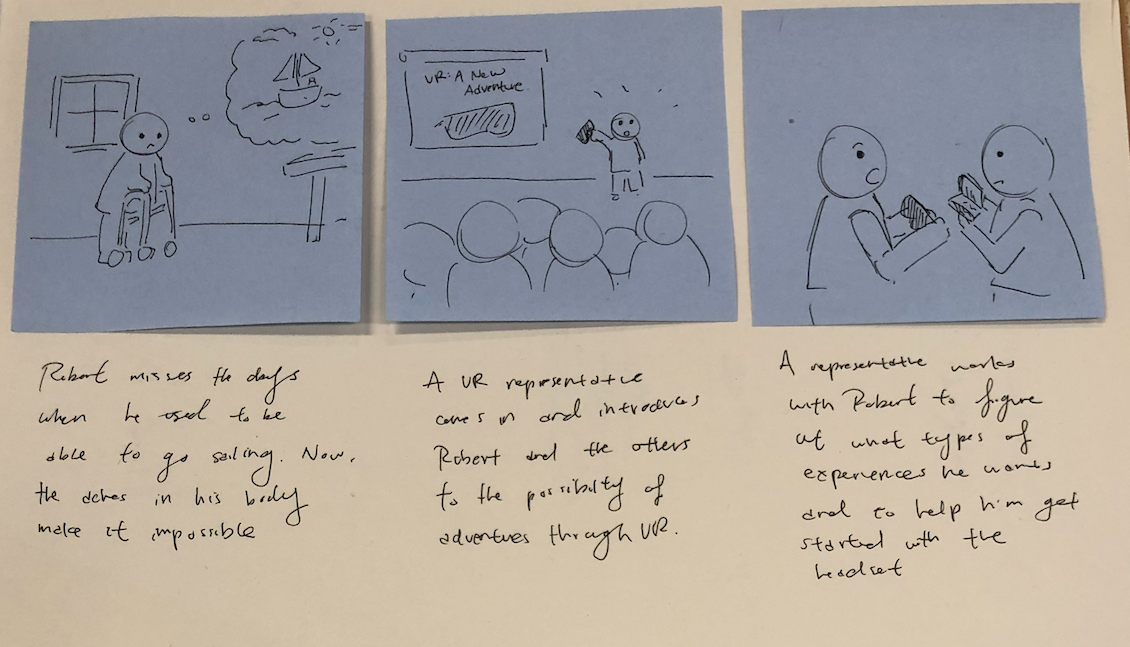 VR: A New
Adventure
Robert misses the days
when he used to be
able to go sailing. Now,
the aches in his body
make it impossible
A VR representative
comes in and introduces
Robert and the others
to the possibility of
adventures through VR.
A representative works
with Robert to figure
out what types of
experiences he wants
and to help him get
started with the
headset